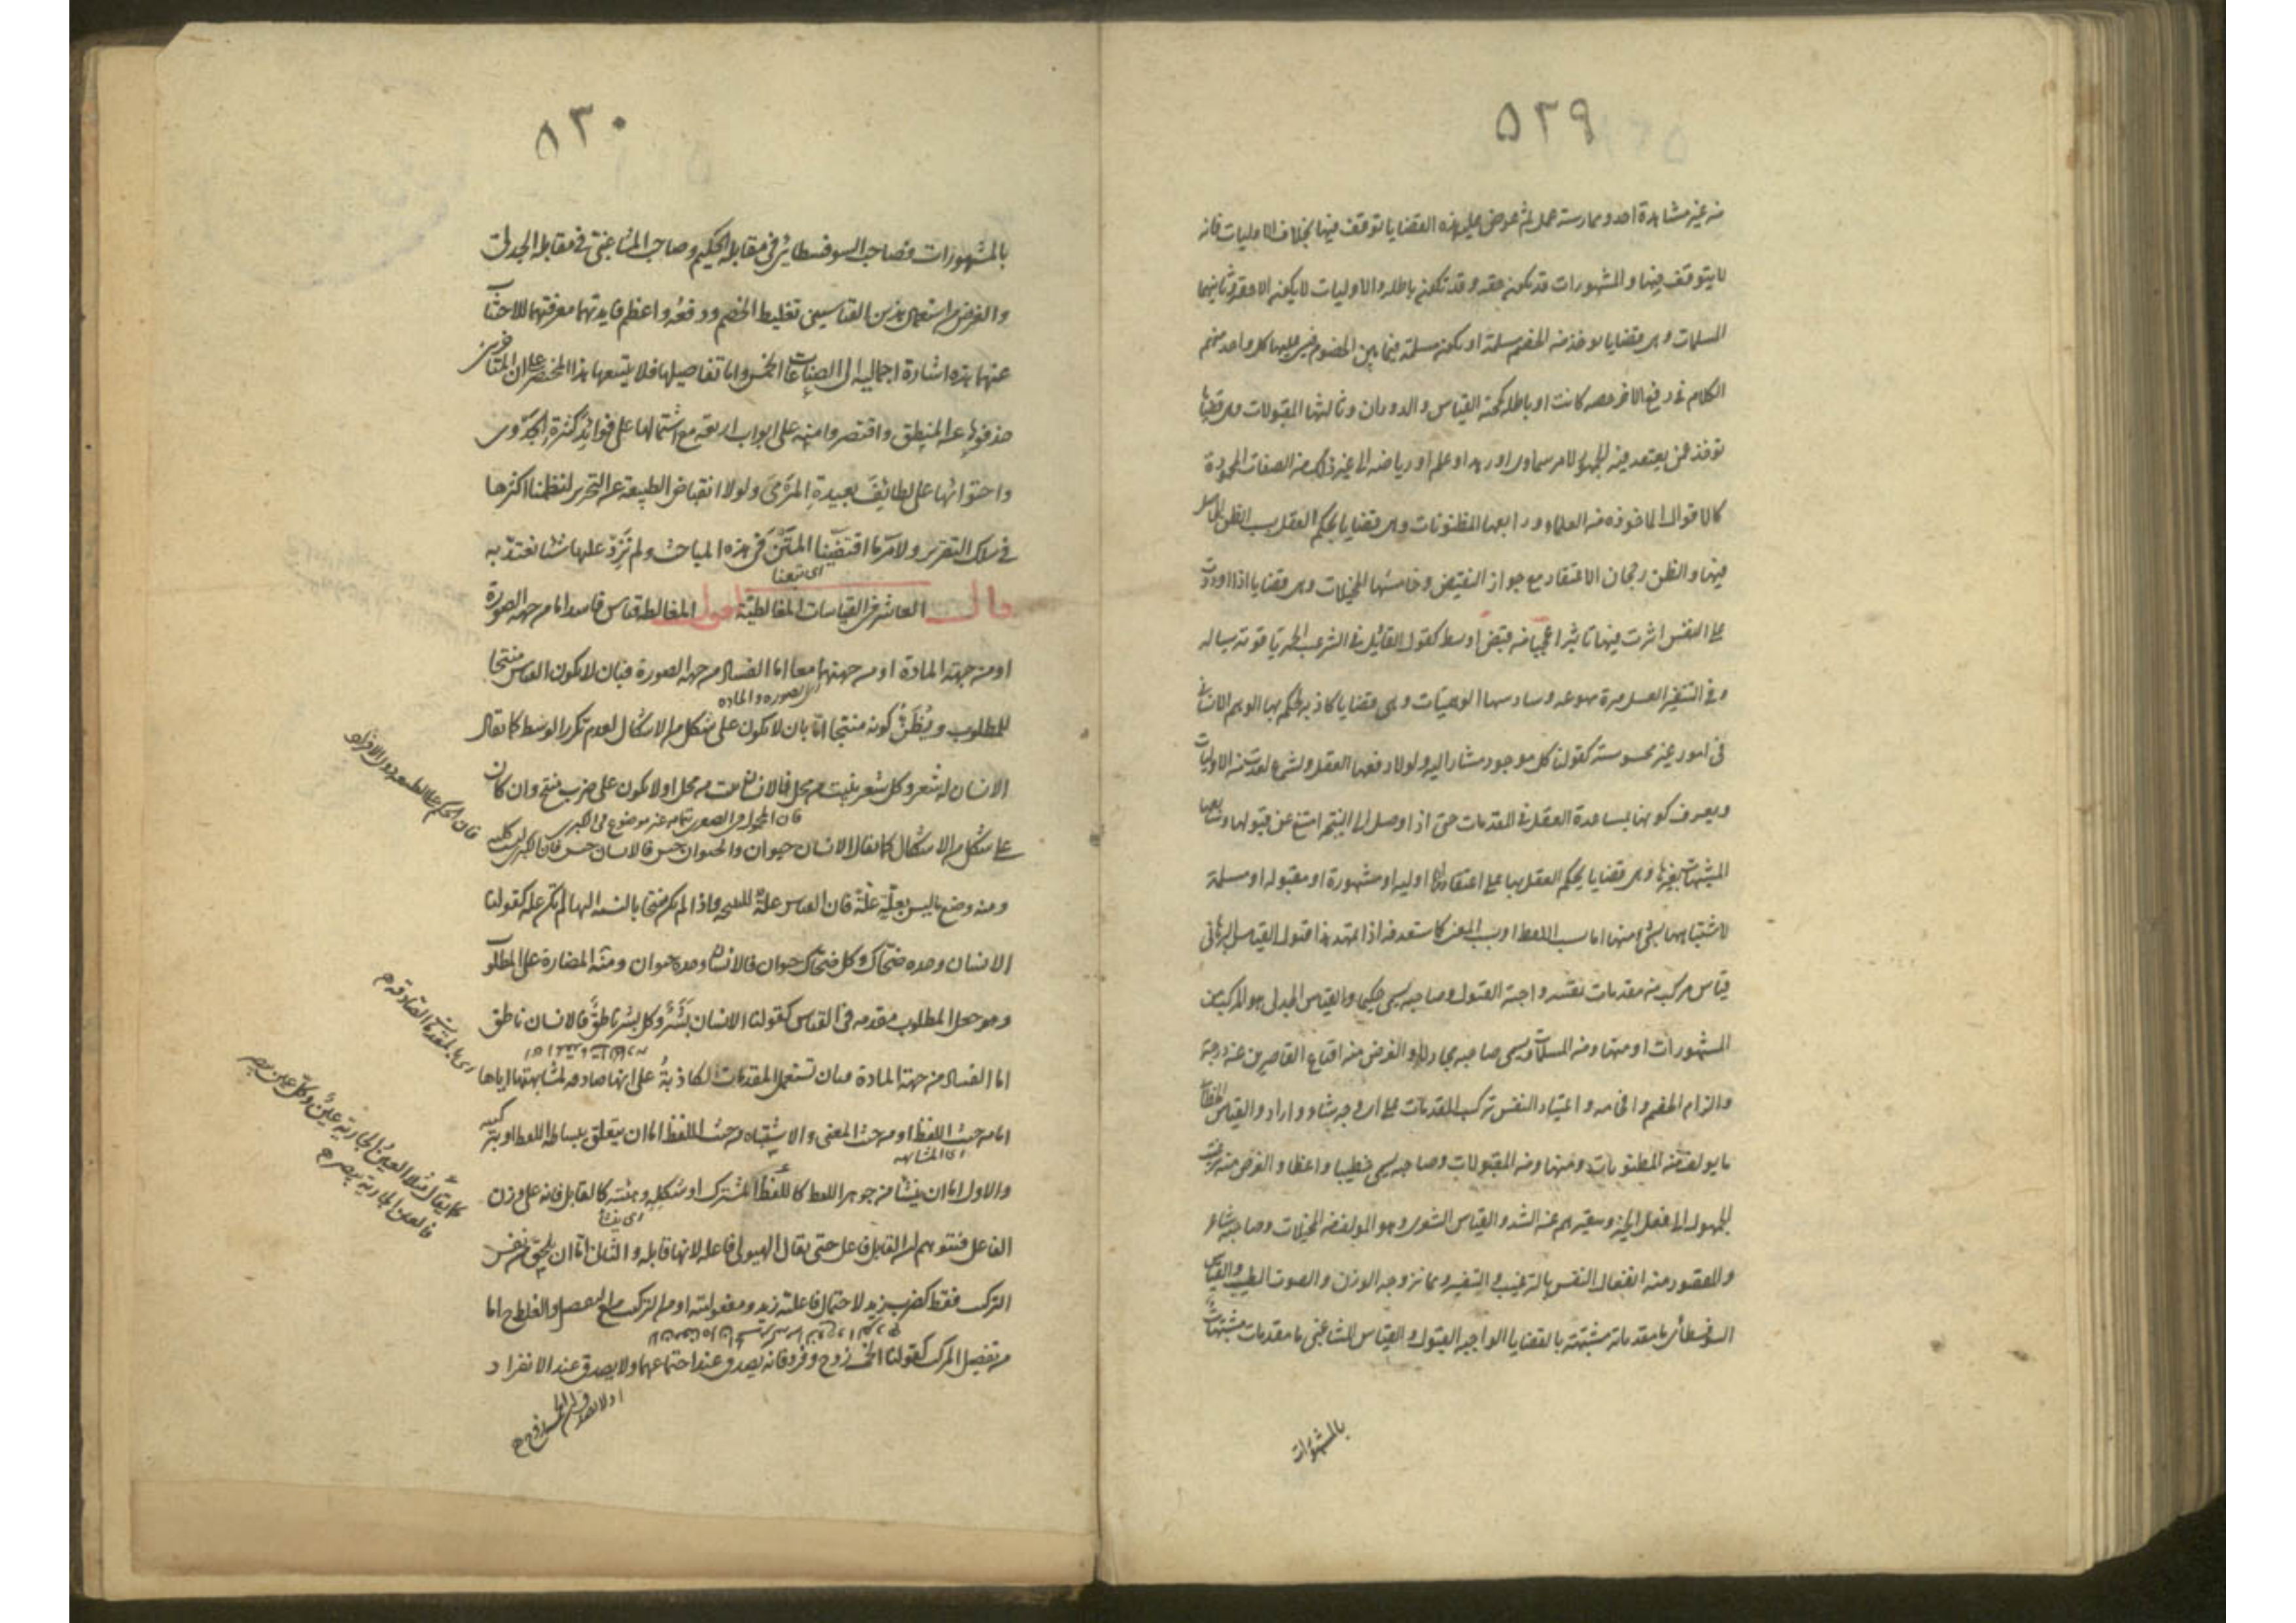 ٥٢٩
من غير مشاهدة احد وممارسة عمل ثم عرض عليه هذه القضايا توقف فيها بخلاف الاوليات فانه
لا يتوقف فيها والمشهورات قد تكون حقه وقد تكون باطله والاوليات لا يكون الا حقه وثانيها
المسلمات وهى قضايا يوخذ من الخصم مسلمة او يكون مسلمة فيما بين الخصوم فيبنى عليها كل واحد منهم
الكلام فى دفع الاخر حقه كانت او باطله كحجة القياس والدوران وثالثها المقبولات وهى قضايا
توخذ ممن يعتقد فيه الجمهور لامر سماوى او زهد او علم او رياضه الى غير ذلك من الصفات المحمودة
كالاقوال الماخوذه من العلماء ورابعها المظنونات وهى قضايا يحكم العقل بسبب الظن الحاصل
فيها والظن رجحان الاعتقاد مع جواز النقيض وخامسها المخيلات وهى قضايا اذا اوردت
على النفس اثرت فيها تاثيرا عجيبا من قبض او بسط كقول القائل فى الترغيب الخمر ياقوتة سياله
وفى التنفير العسل مرة مهوعه وسادسها الوهميات وهى قضايا كاذبه يحكم بها الوهم الانسانى
فى امور غير محسوسة كقولنا كل موجود مشار اليه ولولا دفعها العقل والشرع لعدت من الاوليات
ويعرف كذبها بمساعدة العقل فى المقدمات حتى اذا وصل الى النتيجه امتنع عن قبولها وسابعها
المشبهات بغيرها وهى قضايا يحكم العقل بها على اعتقاد انها اوليه او مشهورة او مقبوله او مسلمة
لاشتباهها بشئ منها اما بسبب اللفظ او بسبب المعنى كما ستعرفه اذا تمهد هذا فنقول القياس البرهانى
قياس مركب من مقدمات يقينيه واجبة القبول وصاحبه يسمى حكيما والقياس الجدلى هو المركب من
المشهورات او منها ومن المسلمات ويسمى صاحبه مجادلا والغرض منه اقناع القاصرين عن درجة
والزام الخصم وافحامه واعتياد النفس تركيب المقدمات على اى وجه شاء واراد والقياس الخطابى
ما يولف من المظنونات ومنها ومن المقبولات وصاحبه يسمى خطيبا وواعظا والغرض منه ترغيب
الجمهور الى فعل الخير وتنفيرهم عن الشر والقياس الشعرى وهو المولف من المخيلات وصاحبه شاعر
والمقصود منه انفعال النفس بالترغيب والتنفير ومما يزوجه الوزن والصوت الطيب والقياس
السوفسطائى ما مقدماته مشبهة بالقضايا الواجبه القبول والقياس المشاغبى ما مقدماته مشبهات
بالمشهورات
٥٣٠
بالمشهورات فصاحب السوفسطائى فى مقابلة الحكيم وصاحب المشاغبى فى مقابلة الجدلى
والغرض من استعمال هذين القياسين تغليط الخصم ودفعه واعظم فايدتهما معرفتهما للاجتناب
عنهما هذه اشارة اجمالية الى الصناعات الخمس واما تفاصيلها فلا يتسعها هذا المختصر على ان المتاخرين
حذفوها عن المنطق واقتصروا منها على ابواب اربعه مع اشتمالها على فوائد كثرة الجدوى
واحتوائها على لطائف بعيدة المرمى ولولا انقباض الطبيعة عن التحرير لنظمنا اكثرها
فى سلك التقرير ولامر ما اقتفينا المتن فى هذه المباحث ولم نزد عليها شيئا نعتد به
اى تبعنا
قال العاشر فى القياسات المغالطية اقول المغالطة قياس فاسد اما من جهة الصورة
او من جهة المادة او من جهتهما معا اما الفساد من جهة الصورة فبان لا يكون القياس منتجا
اى الصوره والماده
للمطلوب ويظن كونه منتجا اما بان لا يكون على شكل من الاشكال لعدم تكرر الوسط كما يقال
الانسان له شعر وكل شعر ينبت من محل فالانسان ينبت من محل او لا يكون على ضرب منتج وان كان
على شكل من الاشكال كما يقال الانسان حيوان والحيوان جنس فالانسان جنس فان الكبرى ليست كليه
فان الحكم على الطبيعه دون الافراد
ومنه وضع ما ليس بعلة علة فان القياس علة للنتيجه فاذا لم يكن منتجا بالنسبة اليها لم يكن علة كقولنا
الانسان وحده ضحاك وكل ضحاك حيوان فالانسان وحده حيوان ومنه المصادرة على المطلوب
وهو جعل المطلوب مقدمه فى القياس كقولنا الانسان بشر وكل بشر ناطق فالانسان ناطق
اما الفساد من جهة المادة فبان تستعمل المقدمات الكاذبة على انها صادقه لمشابهتها اياها
اى بالمقدمات الصادقه م
اما من حيث اللفظ او من حيث المعنى والاشتباه من حيث اللفظ اما ان يتعلق ببساطة اللفظ او بتركيبه
اى المشابهه
والاول اما ان ينشا من جوهر اللفظ كاللفظ المشترك او شكله وهيئته كالقابل فانه على وزن
كما يقال مثلا العين الجارية عين وكل عين يبصر
فالعين الجارية يبصر م
الفاعل فنتوهم ان القابل فاعل حتى يقال الهيولى فاعله لانها قابله والثانى اما ان يلحق من نفس
التركيب فقط كضرب زيد لاحتمال فاعلية زيد ومفعوليته او من التركيب مع التفصيل والغلط اما
من تفصيل المركب كقولنا الخمسة زوج وفرد فانه يصدق عند اجتماعهما ولا يصدق عند الانفراد